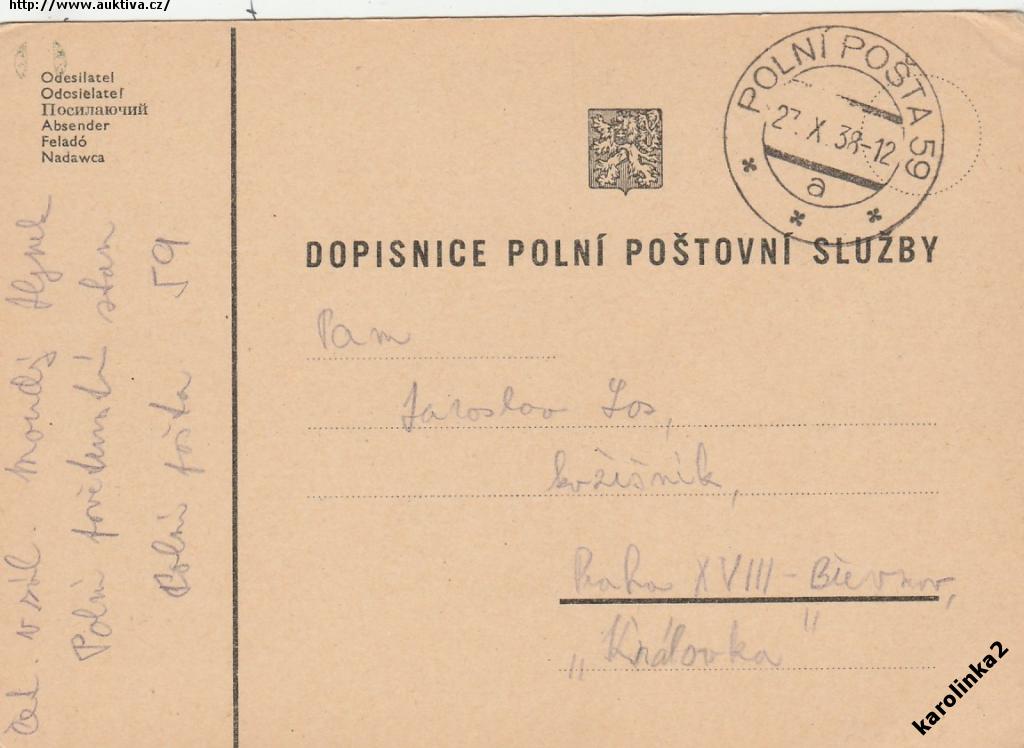 http://www.auktiva.cz/
Odesilatel
Odosielateľ
Посилаючий
Absender
Feladó
Nadawca
POLNÍ POŠTA 59
27. X. 38-12
a
DOPISNICE POLNÍ POŠTOVNÍ SLUŽBY
Pan
Jaroslav Los,
kožišník,
Praha XVIII - Břevnov,
„Královka"
v zál. Moudrý Hynek
Polní stan
Polní pošta 59
karolinka2